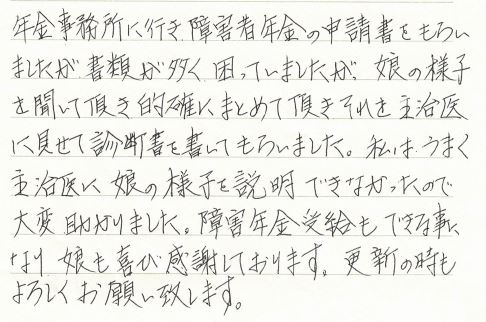 年金事務所に行き障害者年金の申請書をもらい
ましたが書類が多く困っていましたが、娘の様子
を聞いて頂き的確にまとめて頂きそれを主治医
に見せて診断書を書いてもらいました。私はうまく
主治医に娘の様子を説明できなかったので
大変助かりました。障害年金受給もできる事に
なり娘も喜び感謝しております。更新の時も
よろしくお願い致します。